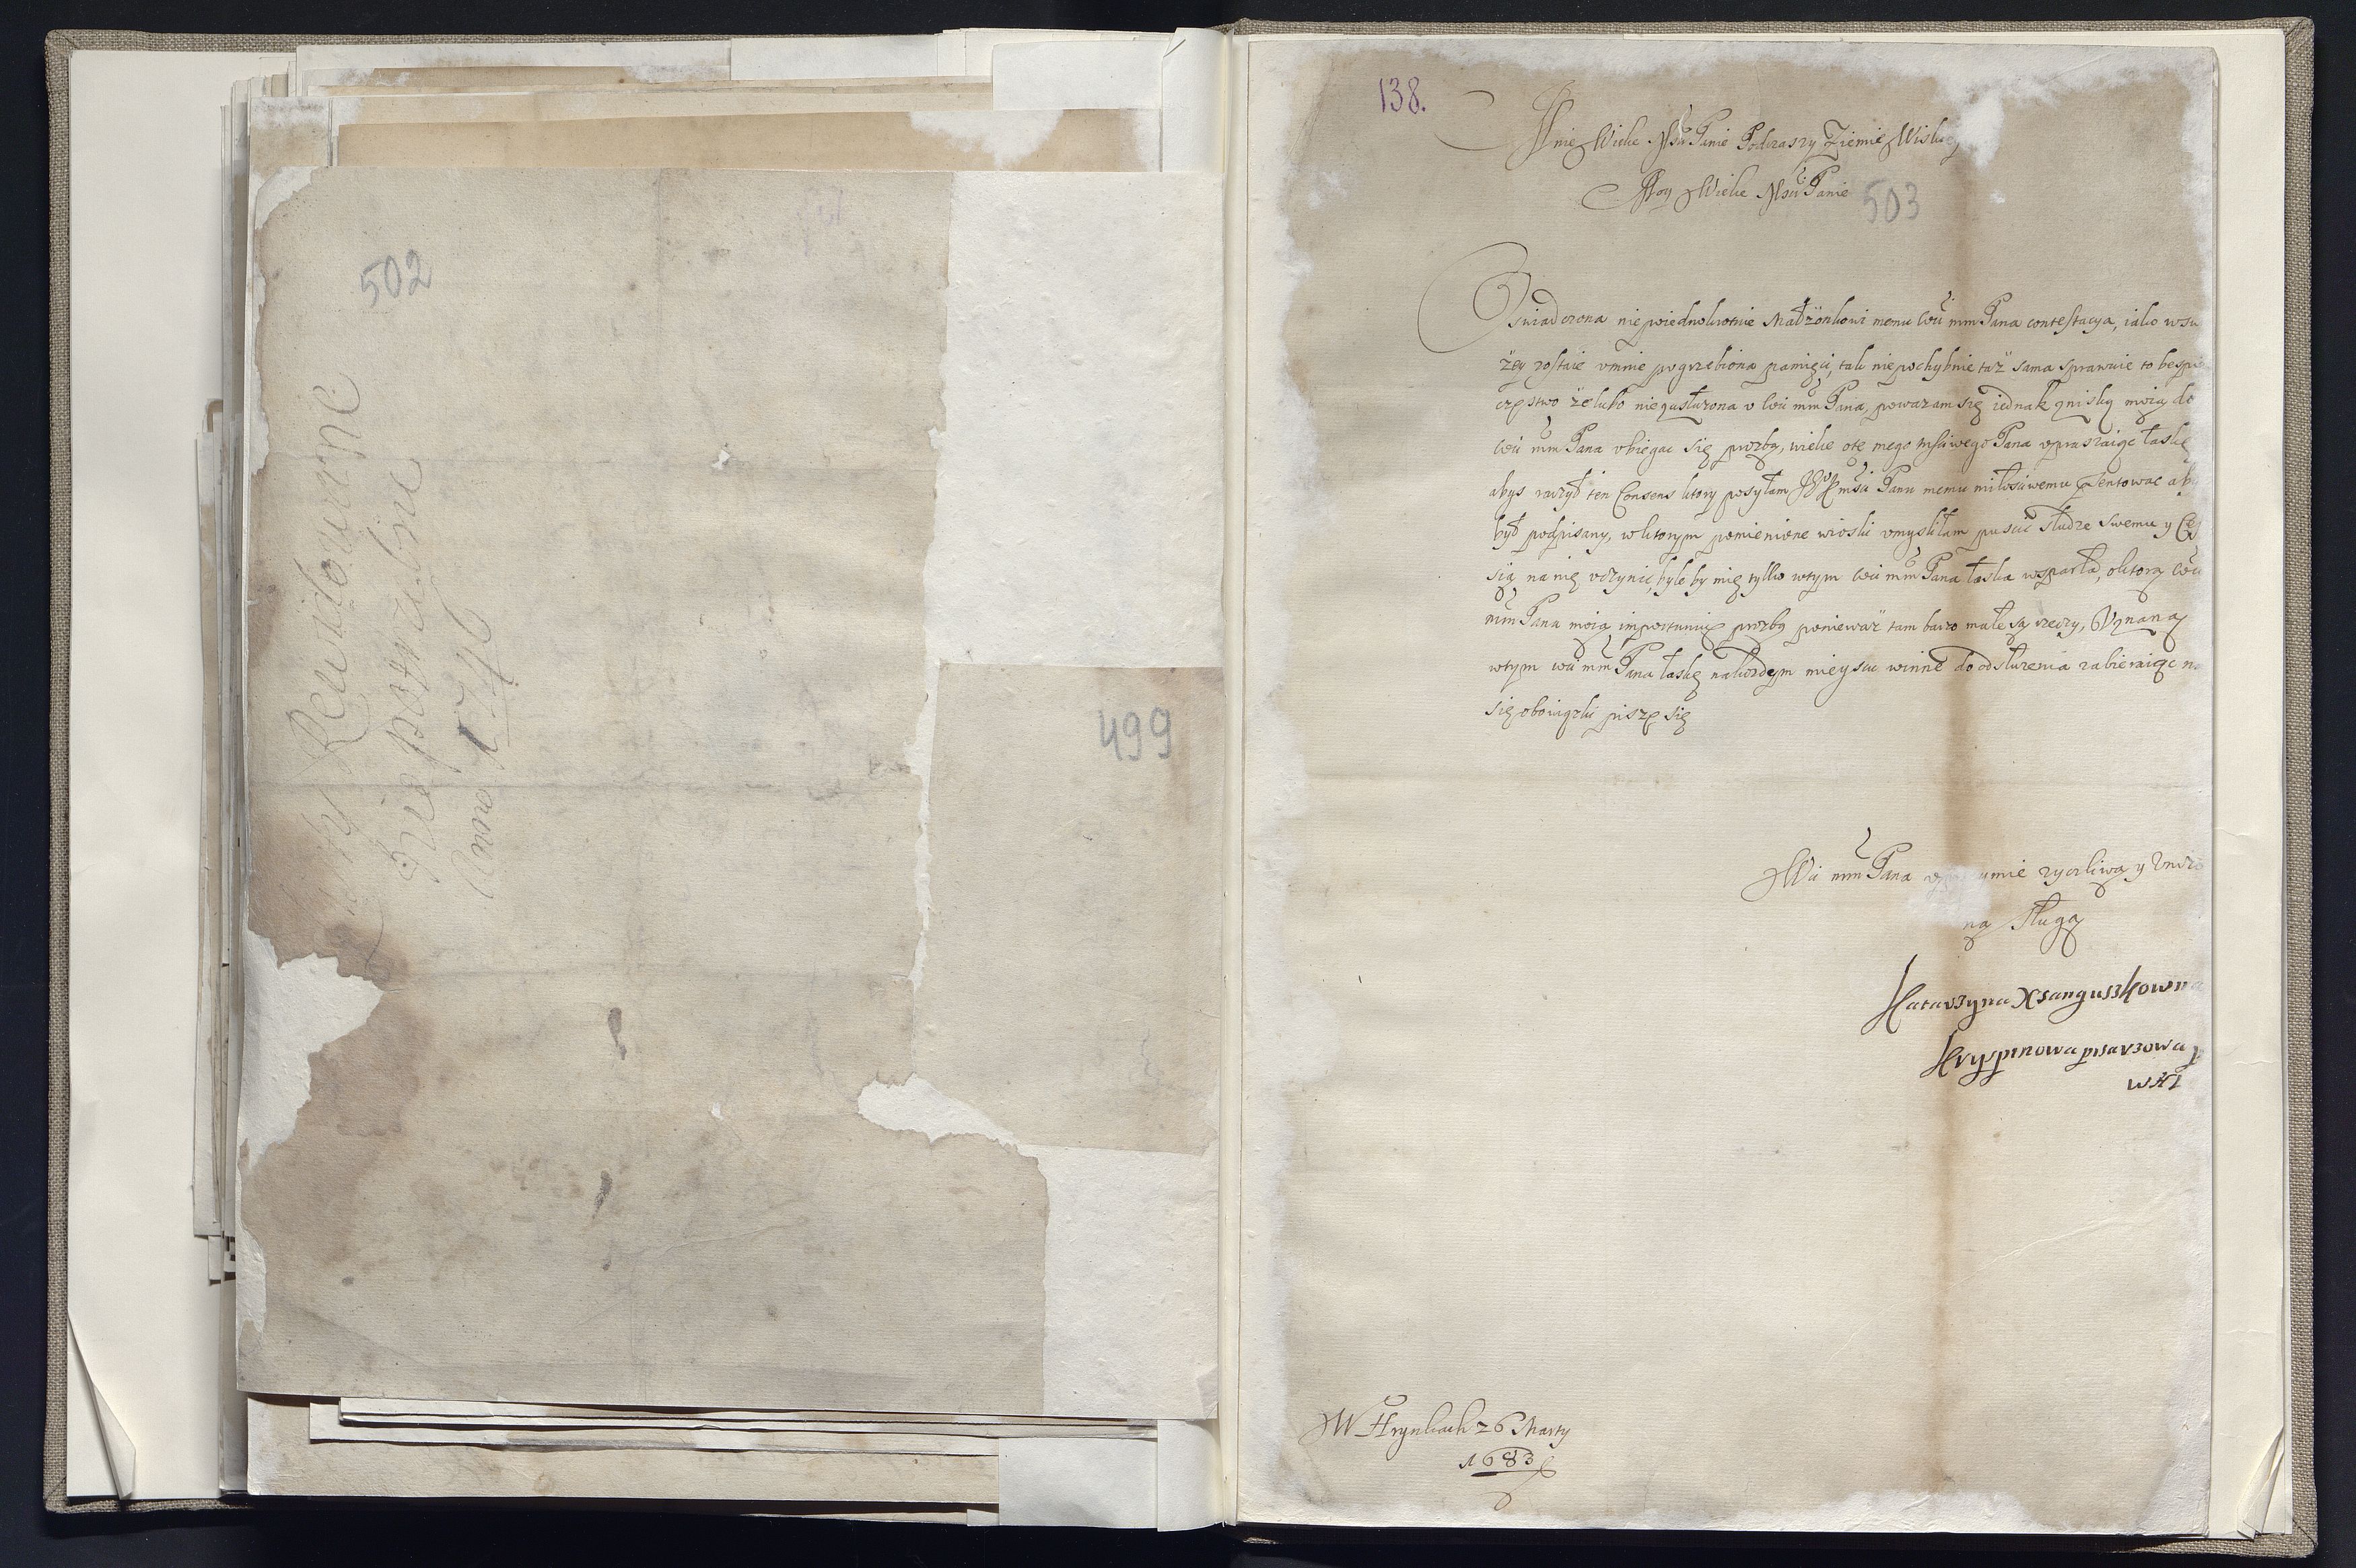 502
Rewidowane
nie potrzebne
Anno 1746
499
138.
Mnie Wielce Mśći Panie Podczaszy Ziemie Wiskiey
Moy Wielce Mśći Panie
503
Oswiadczona niepoiednokrotnie Małżonkowi memu WM mm Pana contestacya, iako w
żey zostaie umnie pogrzebiona pamięci, tak niepochybnie taż sama sprawuie to bespie
częstwo że lubo niezasłużona u WM mm Pana, poważam się iednak z niską moią do
WM mm Pana ubiegac się prozbą, wielce ote mego mściwego Pana upraszaiąc łaskę
abys raczył ten Consens ktory posyłam Panu memu miłościwemu
był podpisany, w ktorym pomienione wioski umysliłam puscić słudze swemu y
się na nię uczynic, byle by mię tylko wtym WM mm Pana łaska wsparła, oktorą WM
mm Pana moią importunię prozbą ponieważ tam barzo małe są rzeczy, Uznaną
wtym WM mm Pana łaskę nakożdym mieyscu winne do odsłużenia zabieraiąc na
się obowiązki piszę się
WM mm Pana zyczliwą y Uniżo
ną Sługą
Katarzyna X sanguszkowna
Kryspinowa pisarzowa
w X L
W Hrynkach 26 Marty
1683